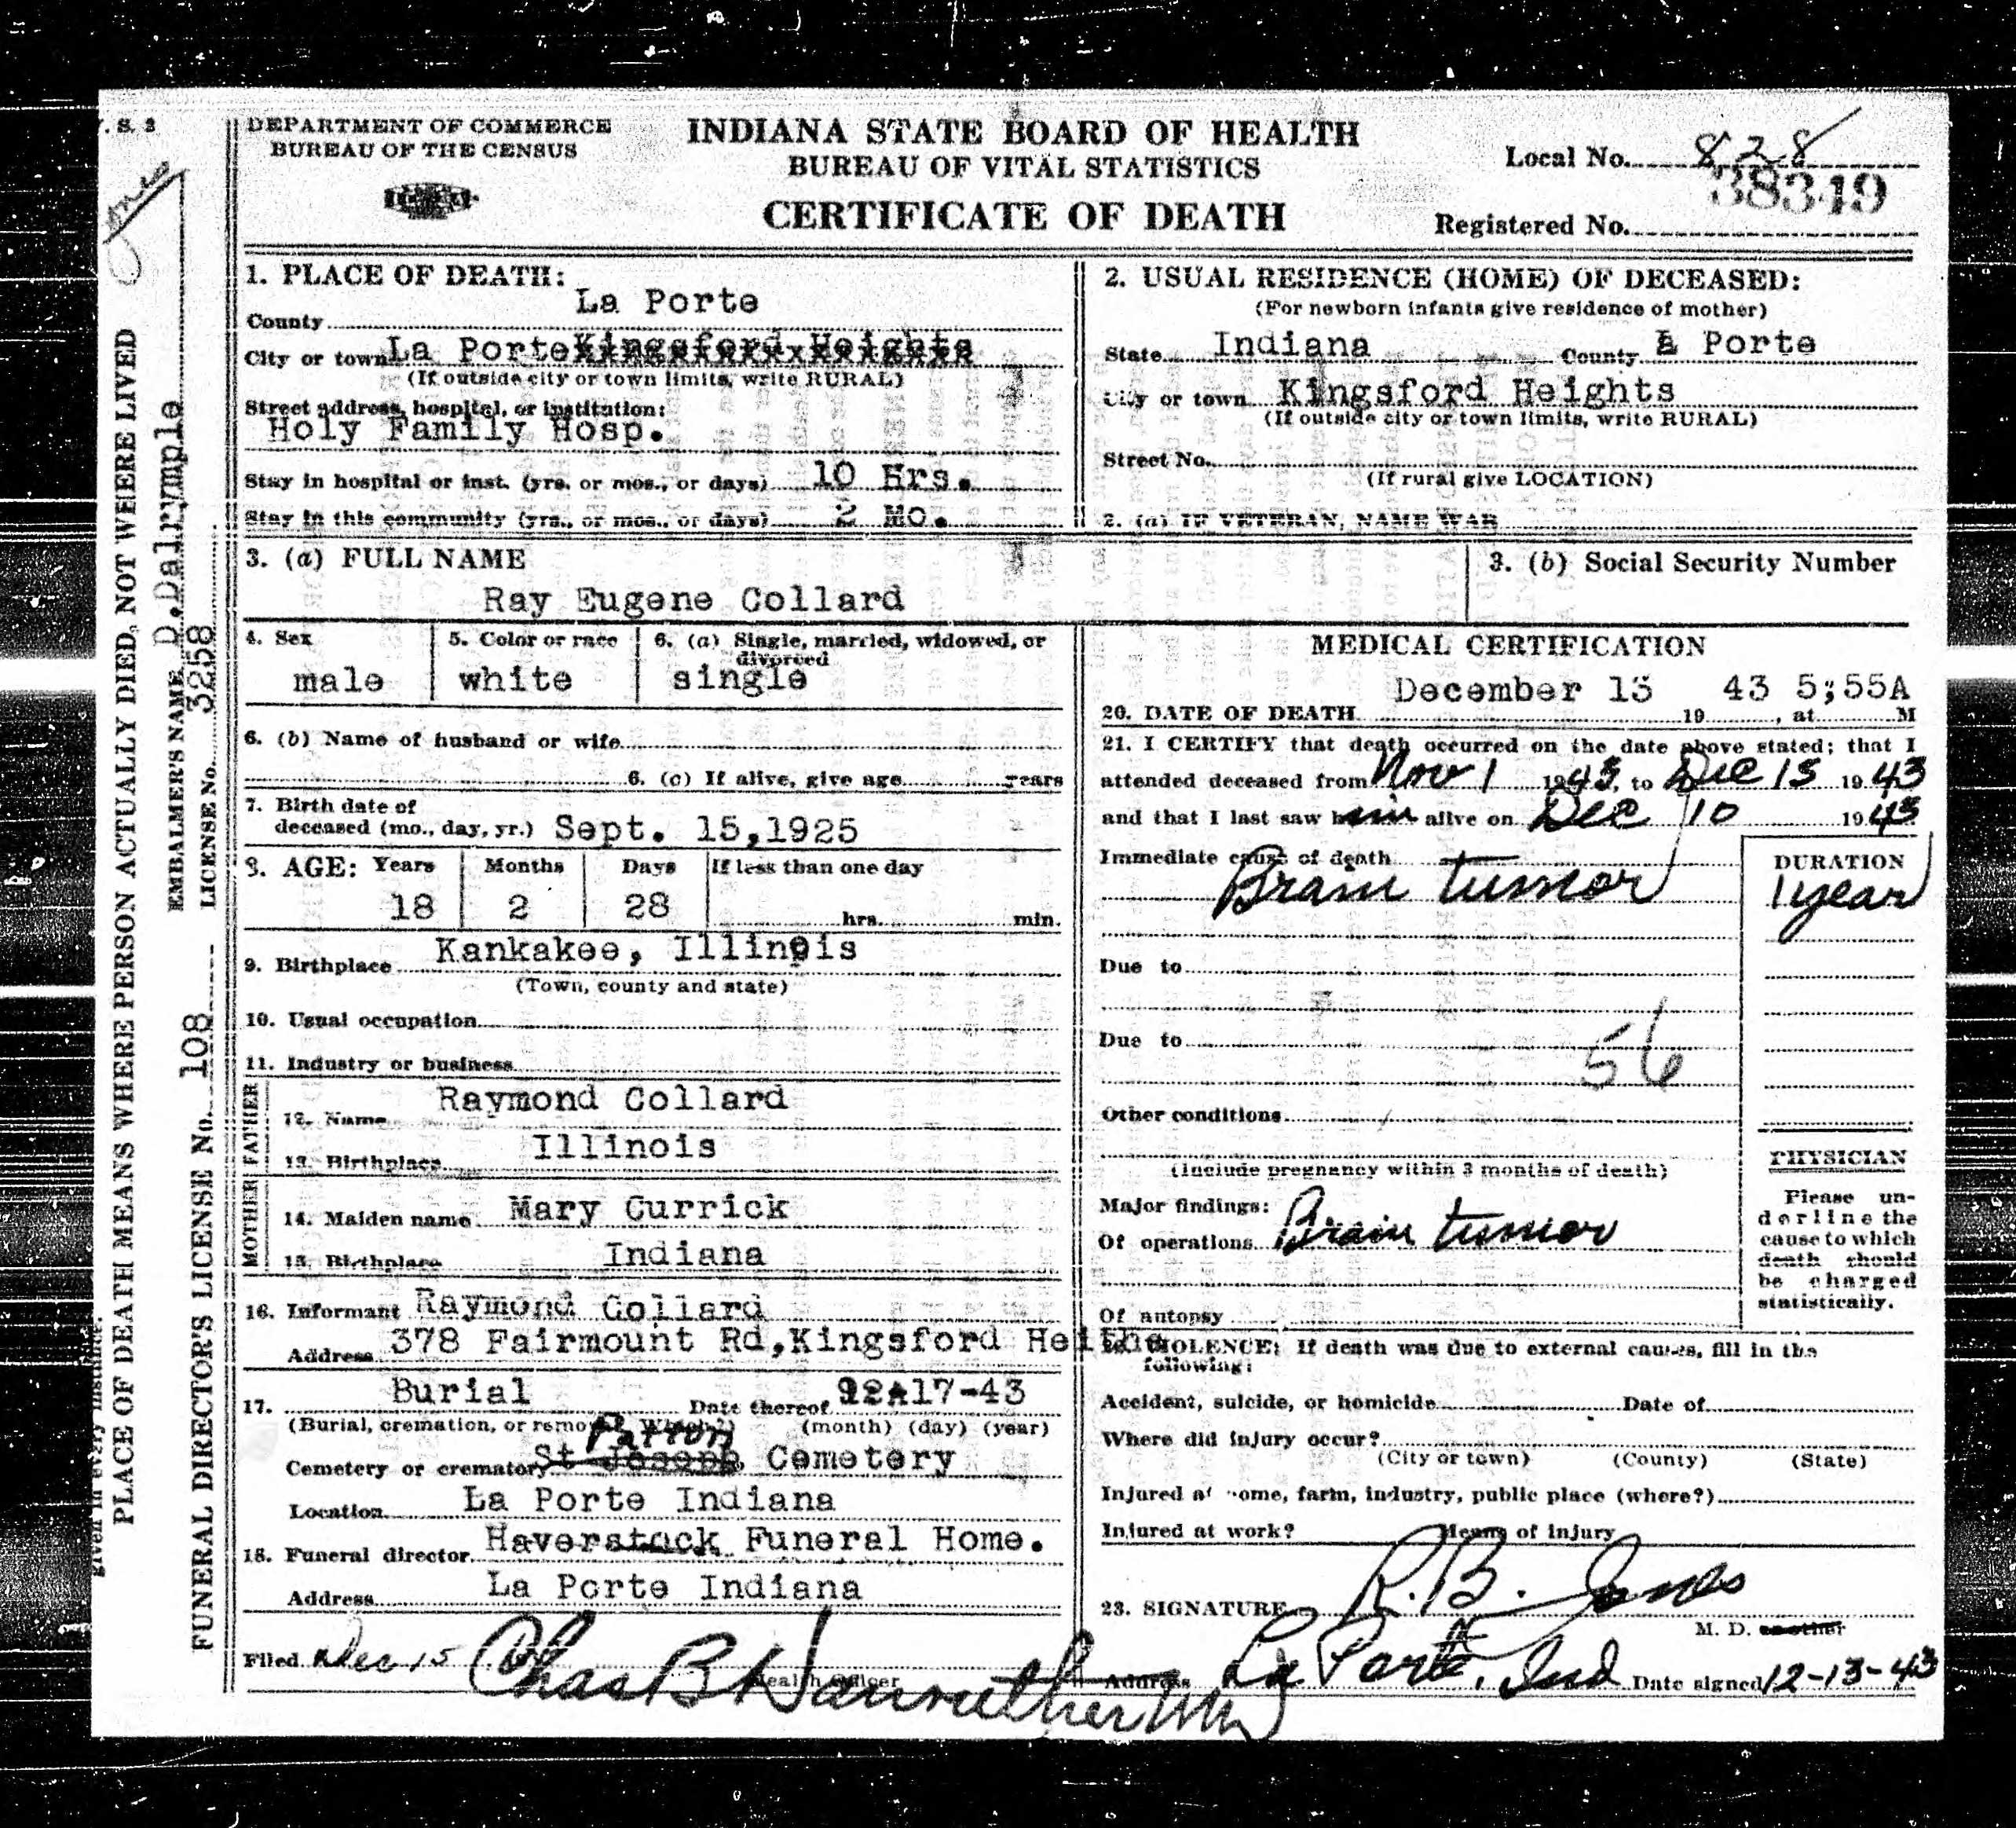 V. S. 2
DEPARTMENT OF COMMERCE
BUREAU OF THE CENSUS
INDIANA STATE BOARD OF HEALTH
BUREAU OF VITAL STATISTICS
CERTIFICATE OF DEATH
Local No. 828
38349
Registered No.
1. PLACE OF DEATH:
County La Porte
City or town La Porte Kingsford Heights
(If outside city or town limits, write RURAL)
Street address, hospital, or institution:
Holy Family Hosp.
Stay in hospital or inst. (yrs. or mos., or days) 10 Hrs.
Stay in this community (yrs., or mos., or days) 2 Mo.
2. USUAL RESIDENCE (HOME) OF DECEASED:
(For newborn infants give residence of mother)
State Indiana County Porte
City or town Kingsford Heights
(If outside city or town limits, write RURAL)
Street No.
(If rural give LOCATION)
2. (a) IF VETERAN, NAME WAR
3. (a) FULL NAME
Ray Eugene Collard
3. (b) Social Security Number
4. Sex
male
5. Color or race
white
6. (a) Single, married, widowed, or
divorced
single
6. (b) Name of husband or wife
6. (c) If alive, give age years
7. Birth date of
deceased (mo., day, yr.) Sept. 15,1925
8. AGE: Years Months Days If less than one day
18 2 28 hrs. min.
9. Birthplace Kankakee, Illinois
(Town, county and state)
10. Usual occupation
11. Industry or business
FATHER
12. Name Raymond Collard
13. Birthplace Illinois
MOTHER
14. Maiden name Mary Currick
15. Birthplace Indiana
16. Informant Raymond Collard
Address 378 Fairmount Rd,Kingsford Heigths
17. Burial Date thereof 12-17-43
(Burial, cremation, or removal. Which?) (month) (day) (year)
Patton
Cemetery or crematory St Joseph Cemetery
Location La Porte Indiana
18. Funeral director Haverstock Funeral Home.
Address La Porte Indiana
Filed Dec 15
Health Officer
MEDICAL CERTIFICATION
December 13 43 5;55A
20. DATE OF DEATH 19 , at M
21. I CERTIFY that death occurred on the date above stated; that I
attended deceased from Nov 1 1943, to Dec 13 1943
and that I last saw him alive on Dec 10 1943
Immediate cause of death
Brain tumor
DURATION
1 year
Due to
Due to
56
Other conditions
(Include pregnancy within 3 months of death)
Major findings:
Of operations Brain tumor
Of autopsy
PHYSICIAN
Please un-
derline the
cause to which
death should
be charged
statistically.
VIOLENCE: If death was due to external causes, fill in the
following:
Accident, suicide, or homicide Date of
Where did injury occur?
(City or town) (County) (State)
Injured at home, farm, industry, public place (where?)
Injured at work? Means of injury
23. SIGNATURE R. B. Jones
M. D. or other
Address La Porte, Ind Date signed 12-13-43
given in every instance.
PLACE OF DEATH MEANS WHERE PERSON ACTUALLY DIED, NOT WHERE LIVED
EMBALMER'S NAME D.Dalrymple
LICENSE No. 3258
FUNERAL DIRECTOR'S LICENSE No. 108